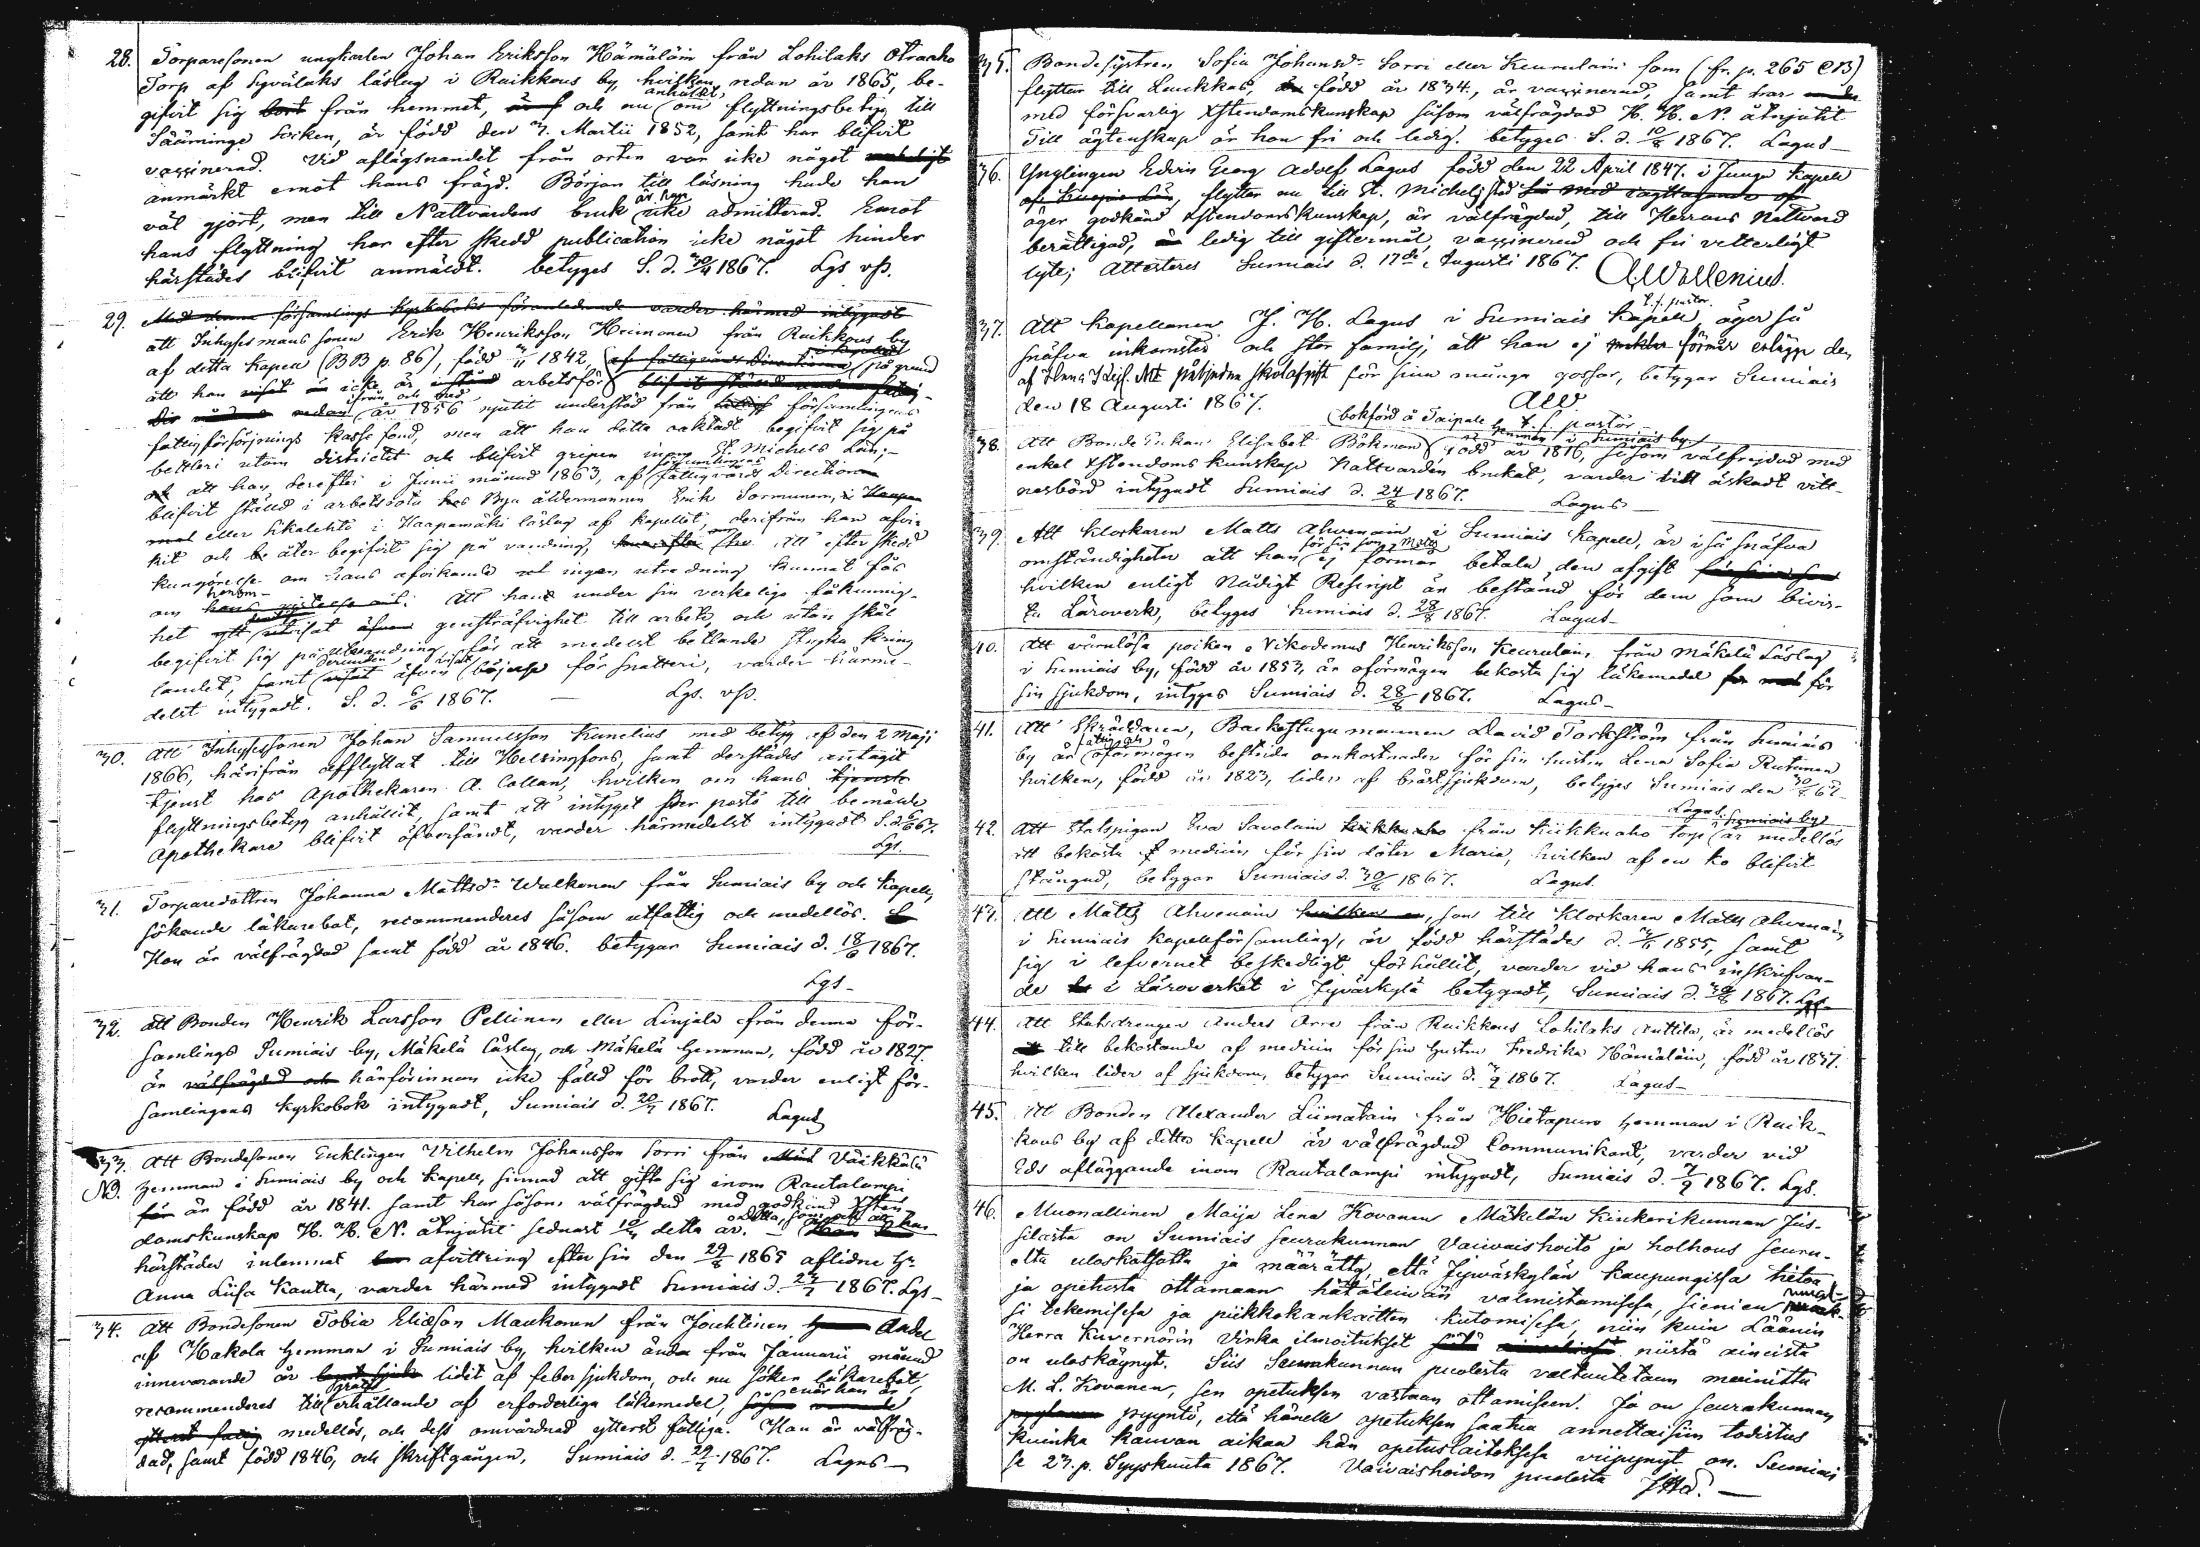 28. Torparesonen ungkarlen Johan Eriksson Hämäläin från Lohilaks Otraaho
Torp af Syvälaks läslag i Raikkous by, hvilken redan år 1865, be-
gifvit sig bort från hemmet, och nu anhållit om flyttningsbetyg till
Sääminge Socken, är född den 7. Martii 1852, samt har blifvit
vaxxinerad. Vid aflägsnandet från orten var icke något
anmärkt emot hans frägd. Början till läsning hade han
väl gjort, men till Nattvardens bruk är han icke admitterad. Emot
hans flyttning har efter skedd publication icke något hinder
härstädes blifvit anmäldt. betyges S. d. 30/4 1867. Lgs vp.
29. Med denna församlings Kyrkoboks föranledande varder härmed intygadt
att Inhyses mans sonen Erik Henriksson Heimonen från Raikkous by
af detta Kapell (BB p. 86), född 1842, på grund
att han icke är arbetsför
redan ifrån och med år 1856 njutit understöd från församlingens
fattigförsörjnings kasse fond, men att han detta oaktadt begifvit sig på
bettleri utom districtet och blifvit gripen inom St. Michels Län;
att han derefter i Junii månad 1863, af församlingens Fattigvårds Direction
blifvit ställd i arbete hos Bya åldermannen Erik Sormunen,
eller Likalehto i Haapamäki läslag af kapellet, derifrån han afvi-
kit och åter begifvit sig på vandring, Att efter skedd
kungörelse om hans afvikande ingen utredning kunnat fås
om honom. Att han under sin verkeliga fåkunnig-
het visat gensträfvighet till arbete, och utan skäl
begifvit sig på utvandring, för att medelst betlande stryka kring
landet, samt derunder visat äfven böjelse för snatteri, varder härme-
delst intygadt. S. d. 6/6 1867. Lgs. vp.
30. Att Inhysessonen Johan Samuelsson Kunelius med betyg af den 2 Maji
1866, härifrån afflyttat till Helsingfors, samt derstädes antagit
tjenst hos Apothekaren A. Collan, hvilken om hans tjenste
flyttningsbetyg anhållit, samt att intyget per posto till bemälde
Apothekare blifvit öfversändt, varder härmedelst intygadt S. d. 6/6 67.
Lgs.
31. Torparedottren Johanna Mattsdr Walkonen från Sumiais by och Kapell,
sökande läkarebot, recommenderes såsom utfattig och medellös.
Hon är välfrägdad samt född år 1846. betygar Sumiais d. 18/6 1867.
Lgs-
32. Att Bonden Henrik Larsson Pellinen eller Linjala från denna för-
samlings Sumiais by, Mäkelä Läslag, och Mäkelä Hemman, född år 1827,
är välfrägdad och härförinnan icke fälld för brott, varder enligt för-
samlingens Kyrkobok intygadt, Sumiais d. 20/7 1867. Lagus
33. Att Bondesonen Enklingen Vilhelm Johansson Sorri från Väikkälä
NB. Hemman i Sumiais by och Kapell, sinnad att gifta sig inom Rautalampi
är född år 1841. samt har såsom välfrägdad med godkänd Xsten-
domskunskap H. H. N. åtnjutit sednast detta år.
härstädes inlemnat afvittring efter sin den 29/8 1865 aflidne H:
Anna Liisa Kautta, varder härmed intygadt Sumiais d. 27/7 1867. Lgs-
34. Att Bondesonen Tobias Eliasson Maukonen från Jouhtinen Andel
af Hakola Hemman i Sumiais by, hvilken ända från Januarii månad
innevarande år lidit af feber sjukdom, och nu söker läkarebot,
recommenderes till gratis erhållande af erforderliga läkemedel, enär han är
ytterst fattig medellös, och dess omvårdnad ytterst fattiga. Han är välfräg-
dad, samt född 1846, och skriftgången, Sumiais d. 29/7 1867. Lagus-
35. Bondesystren Sofia Johansdr Sorri eller Keurulain som (fr. p. 265 CB)
flyttar till Laukkas, född år 1834, är vaxxinerad, samt har
med försvarlig Xstendomskunskap såsom välfrägdad H. H. N. åtnjutit
Till ägtenskap är hon fri och ledig. betyges. S. d. 10/8 1867. Lagus-
36. Ynglingen Edvin Georg Adolf Lagus född den 22 April 1847. i Junga Kapell
af Kuopio Län, flyttar nu till St. Michels stad
äger godkänd Xstendomskunskap, är välfrägdad, till Herrans Nattvard
berättigad, ledig till giftermål, vaxxinerad och fri vetterligt
lyte; Attesteres Sumiais d. 17de Augusti 1867. AWallenius.
t. f. pastor.
37. Att Kapellanen J. H. Lagus i Sumiais Kapell, äger så
snäfva inkomster och stor familj, att han ej förmår erlägga den
af påbjudna skolafgift för sina många gossar, betygar Sumiais
den 18 Augusti 1867. AW
t. f. pastor
38. Att Bonde Enkan Elisabet Bökman (bokförd å Taipale Hemman i Sumiais by) född år 1816, såsom välfrejdad med
enkel Xstendomskunskap Nattvarden brukat, varder till äskadt vitt-
nesbörd intygadt Sumiais d. 24/8 1867. Lagus-
39. Att Klockaren Matts Ahvenain i Sumiais Kapell, är i så snäfva
omständigheter att han för sin son Matts ej förmår betala den afgift
hvilken enligt Nådigt Rescript är bestämd för dem som bivis-
ta Läroverk, betyges Sumiais d. 28/8 1867. Lagus-
40. Att värnlösa poiken Nikodemus Henriksson Keurulain från Mäkelä Läslag
i Sumiais by, född år 1853, är oförmögen bekosta sig läkemedel för
sin sjukdom, intyges Sumiais d. 28/8 1867. Lagus-
41. Att Skräddaren, Backstugumannen David Torkström från Sumiais
by är fattig och oförmögen bestrida omkostnader för sin hustru Lena Sofia Rutanen
hvilken, född år 1823, lider af bråcksjukdom, betyges Sumiais den 30/8 67-
Lagus.
42. Att Statspigan Eva Savolain från Kiikkuaho torp i Sumiais by är medellös
att bekosta medicin för sin doter Maria, hvilken af en ko blifvit
stångad, betygar Sumiais d. 30/8 1867. Lagus.
43. Att Matts Ahvenain hvilken är, son till Klockaren Matts Ahvenain
i Sumiais Kapellförsamling, är född härstädes d. 1855, samt
sig i lefvernet beskedligt förhållit, varder vid hans inskrifvan-
de i Läroverket i Jyväskylä betygadt, Sumiais d. 30/8 1867. Lgs-
44. Att Statsdrengen Anders Arre från Raikkous Lohilaks Anttila, är medellös
till bekostande af medicin för sin Hustru Fredrika Hämäläin, född år 1837.
hvilken lider af sjukdom, betygar Sumiais d. 1867. Lagus-
45. At Bonden Alexander Liimatain från Hietapuro Hemman i Raik-
kous by af detta Kapell är välfrägdad Communikant, varder vid
Eds afläggande inom Rautalampi intygadt, Sumiais d. 7/9 1867. Lgs.
46. Muonallinen Maija Lena Kovanen Mäkelän Kinkerikunnan
on Sumiais Seurakunnan Vaivaishoito ja holhous seura-
elta uloskatsottu ja määrätty, että Jywäskylän Kaupungissa tietoa
ja opetusta ottamaan hätäleivän valmistamisessa, sienien
tekemisessä ja piikkokankaitten kutomisessa, niin kuin Läänin
Herra Kuvernörin Virka ilmoitukset niistä aineista
on uloskäynyt. Siis Seurakunnan puolesta valtuutetaan mainittu
M. L. Kovanen, sen opetuksen vastaan ottamiseen. Ja on seurakunnan
pyyntö, että hänelle opetuksen saatua annettaisiin todistus
kuinka kauvan aikaa hän opetuslaitoksessa viipynyt on. Sumiais
se 23. p. Syyskuuta 1867. Vaivaishoidon puolesta